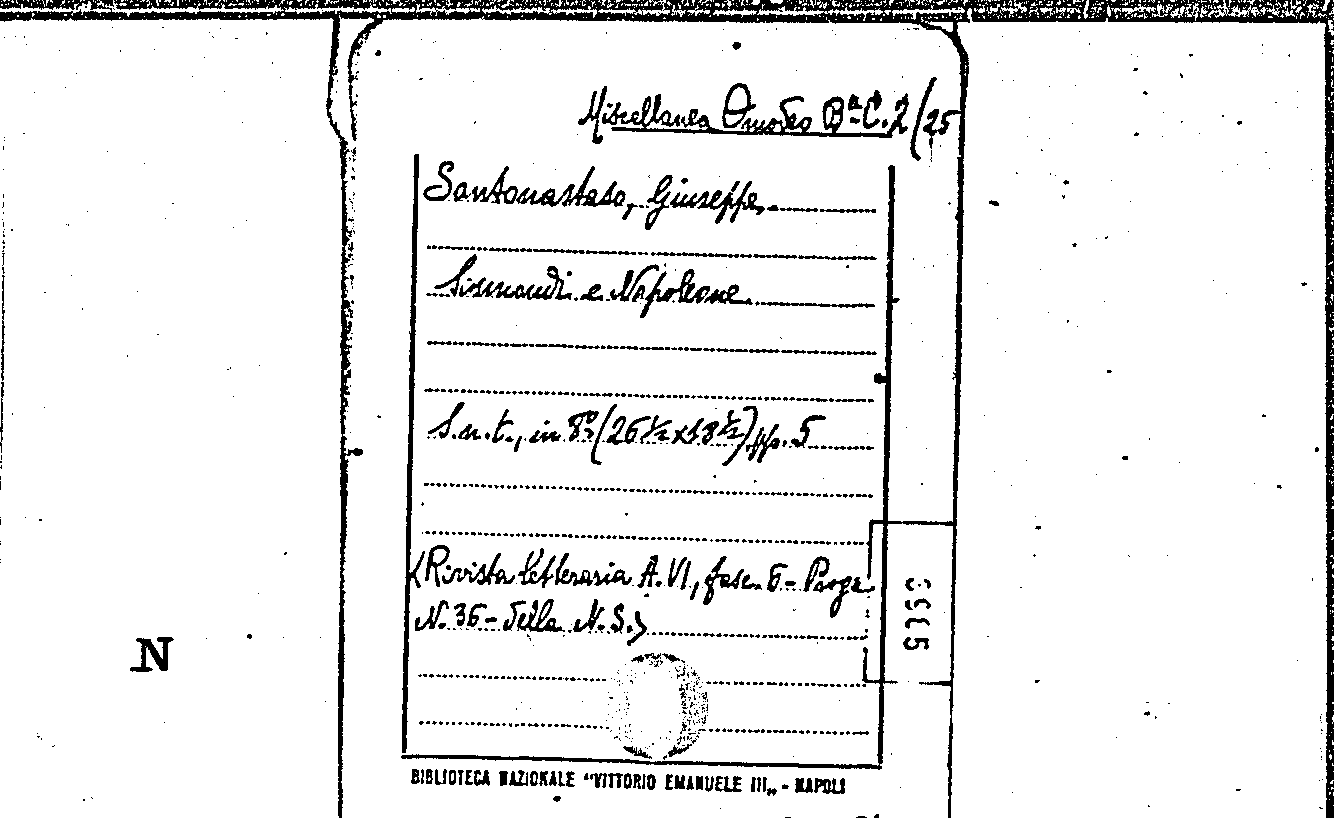 Miscellanea Omodeo Bª C. 2/25
Santonastaso, Giuseppe.
Sismondi e Napoleone.
S.n.t., in 8º (26 ½ x 18 ½) pp. 5
(Rivista letteraria A. VI, fasc. 6 - Progr.
N. 36 - della N. S.)
N
BIBLIOTECA NAZIONALE "VITTORIO EMANUELE III„ - NAPOLI